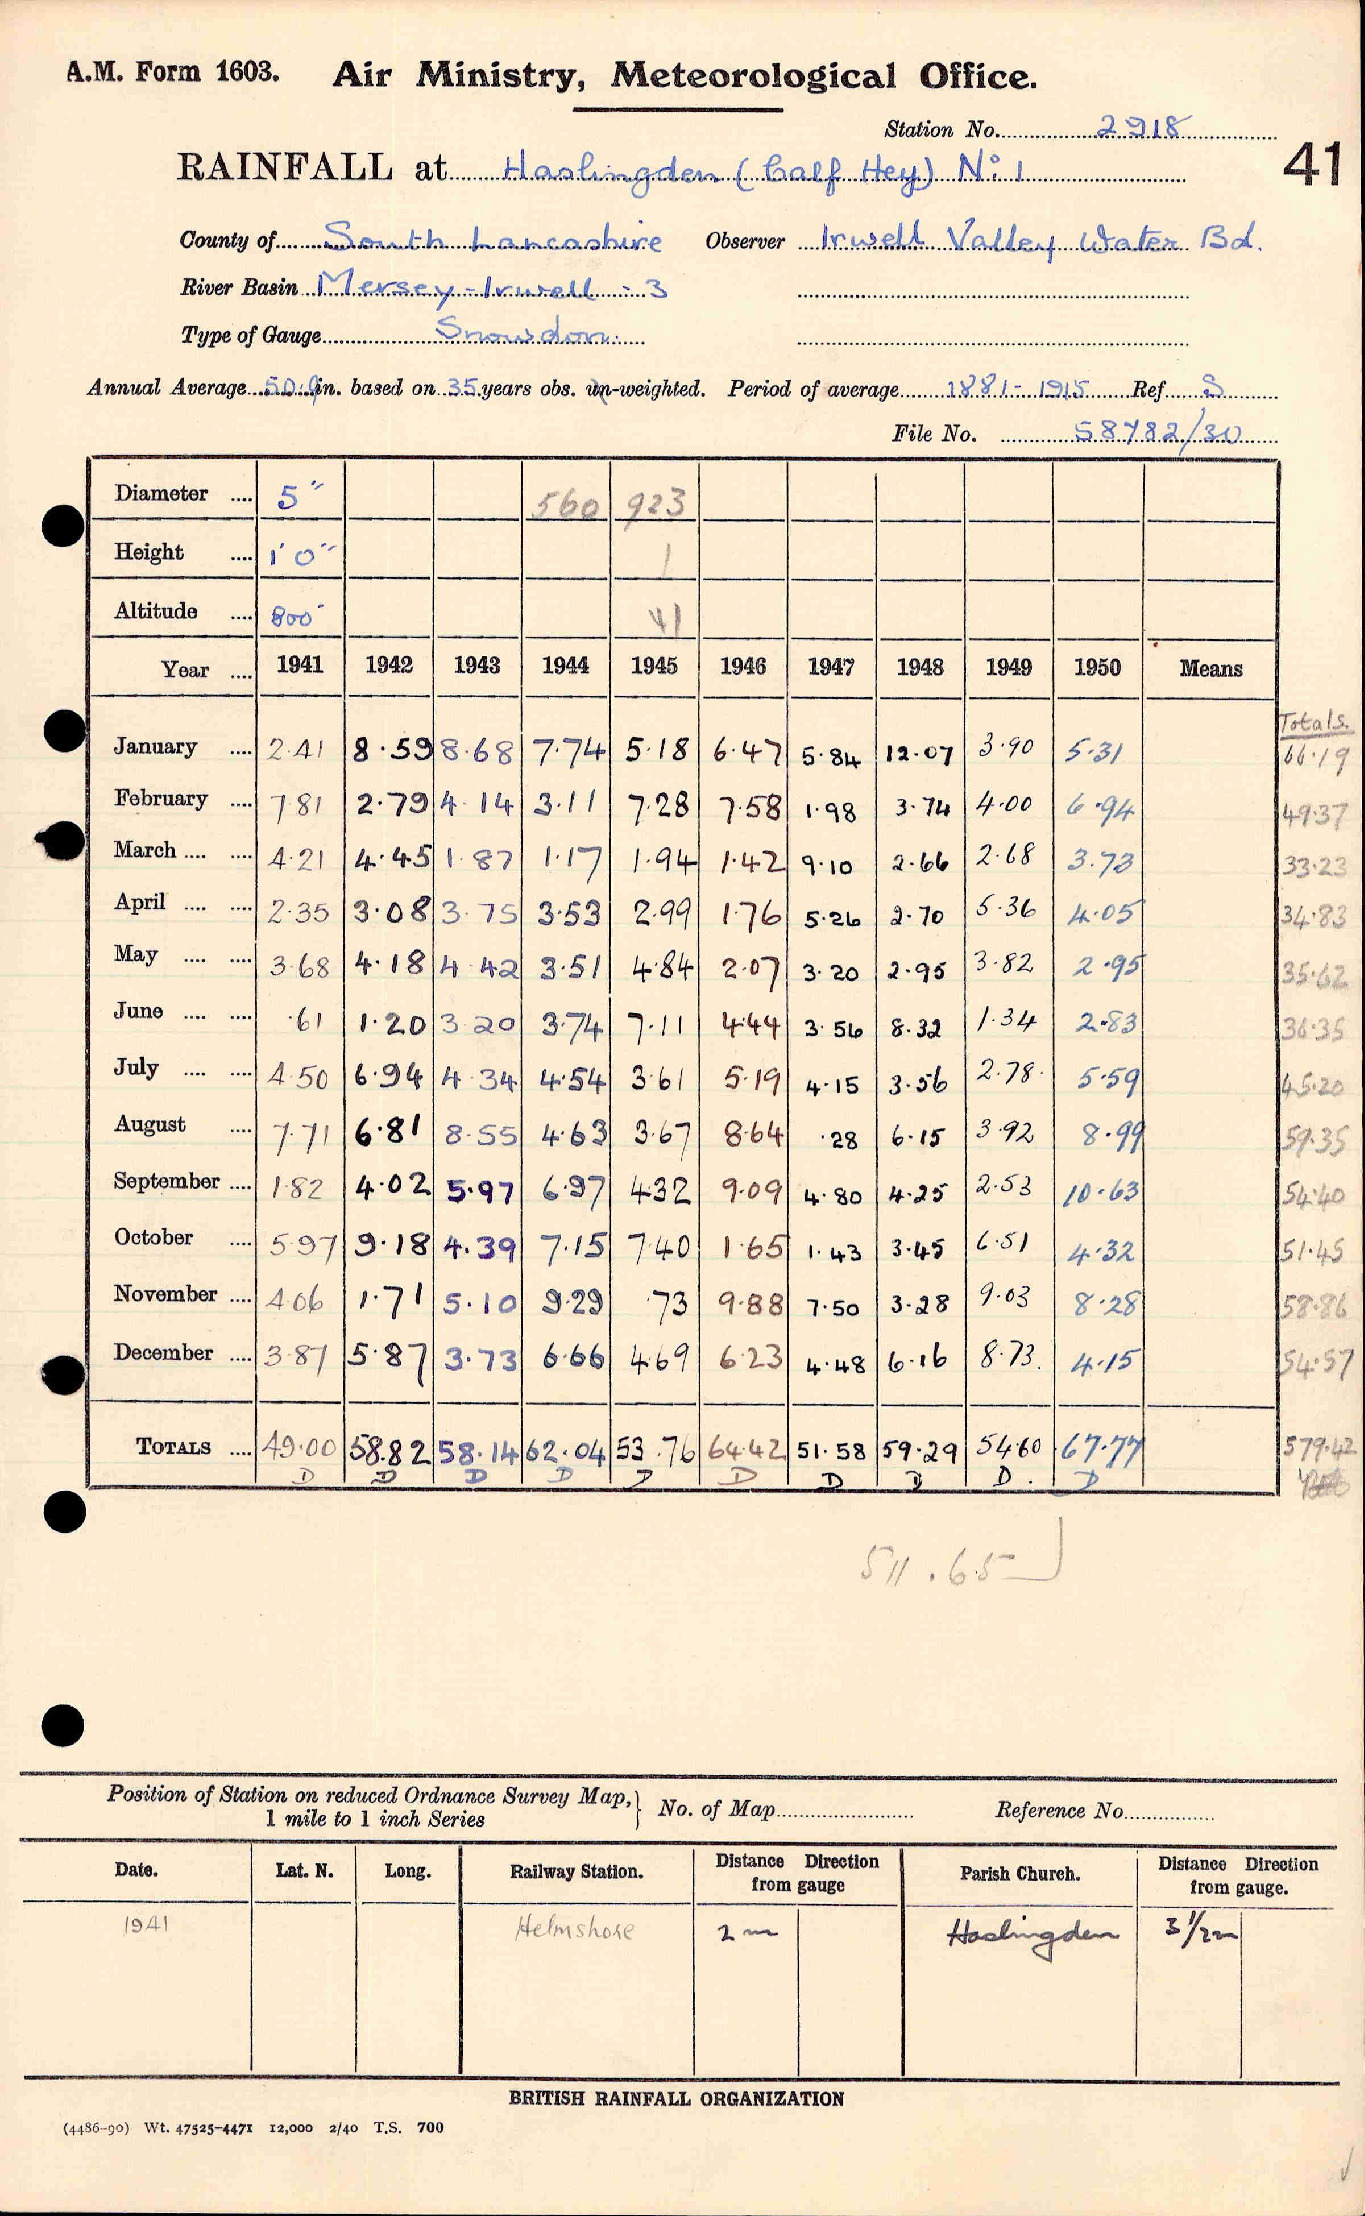 A.M. Form 1603. Air Ministry, Meteorological Office.
Station No. 2918
RAINFALL at Haslingden (Calf Hey) No. 1
41
County of South Lancashire Observer Irwell Valley Water Bd.
River Basin Mersey-Irwell - 3
Type of Gauge Snowdon
Annual Average 50.9 in. based on 35 years obs. un-weighted. Period of average 1881-1915 Ref. S
File No. 58782/30
Diameter .... 5" 560 923
Height .... 1' 0" 1
Altitude .... 800' 41
Year .... 1941 1942 1943 1944 1945 1946 1947 1948 1949 1950 Means
Totals.
January .... 2.41 8.59 8.68 7.74 5.18 6.47 5.84 12.07 3.90 5.31 66.19
February .... 7.81 2.79 4.14 3.11 7.28 7.58 1.98 3.74 4.00 6.94 49.37
March .... .... 4.21 4.45 1.87 1.17 1.94 1.42 9.10 2.66 2.68 3.73 33.23
April .... .... 2.35 3.08 3.75 3.53 2.99 1.76 5.26 2.70 5.36 4.05 34.83
May .... .... 3.68 4.18 4.42 3.51 4.84 2.07 3.20 2.95 3.82 2.95 35.62
June .... .... .61 1.20 3.20 3.74 7.11 4.44 3.56 8.32 1.34 2.83 36.35
July .... .... 4.50 6.94 4.34 4.54 3.61 5.19 4.15 3.56 2.78 5.59 45.20
August .... 7.71 6.81 8.55 4.63 3.67 8.64 .28 6.15 3.92 8.99 59.35
September .... 1.82 4.02 5.97 6.97 4.32 9.09 4.80 4.25 2.53 10.63 54.40
October .... 5.97 9.18 4.39 7.15 7.40 1.65 1.43 3.45 6.51 4.32 51.45
November .... 4.06 1.71 5.10 9.29 .73 9.88 7.50 3.28 9.03 8.28 58.86
December .... 3.87 5.87 3.73 6.66 4.69 6.23 4.48 6.16 8.73 4.15 54.57
TOTALS .... 49.00 58.82 58.14 62.04 53.76 64.42 51.58 59.29 54.60 67.77 579.42
D D D D D D D D D D
511.65
Position of Station on reduced Ordnance Survey Map, 1 mile to 1 inch Series } No. of Map Reference No.
Date. Lat. N. Long. Railway Station. Distance Direction from gauge Parish Church. Distance Direction from gauge.
1941 Helmshore 2 m Haslingden 3 1/2 m
BRITISH RAINFALL ORGANIZATION
(4486-90) Wt. 47525-4471 12,000 2/40 T.S. 700